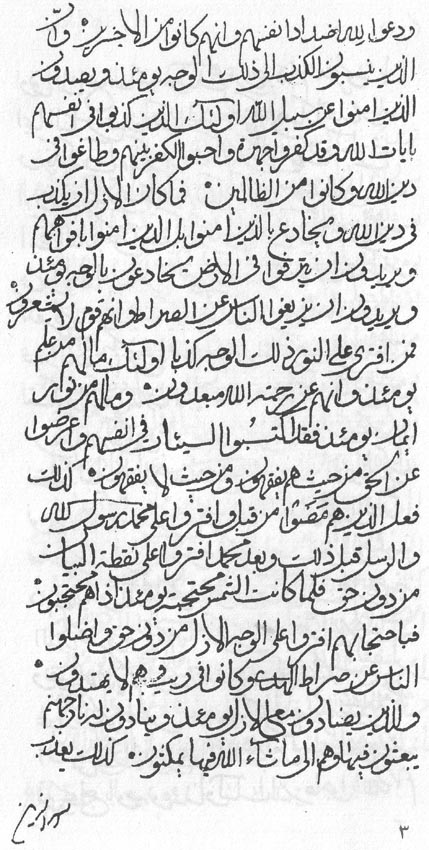 ودعوا لله اضدادا نفسهم وانهم كانوا من الاخسرين وان
الذين ينسبون الكذب الى ذلك الوجه يومئذ ويصدون
الذين امنوا عن سبيل الله اولئك الذين كذبوا فى نفسهم
بايات الله وقد كفروا جهرة واحبوا الكفر بينهم وطاغوا فى
دين الله وكانوا من الظالمين فما كان الازل ان يكذب
فى دين الله ويخادع بالذين امنوا بل الذين امنوا بافواههم
ويريدون ان يترقوا فى الارض يخادعون بالوجه يومئذ
ويريدون ان يزيغوا الناس عن الصراط وانهم قوم لا يشعرون
فمن افترى على النور ذلك الوجه كذبا اولئك مالهم من علم
يومئذ وانهم عن رحمة الله مبعدون ومالهم من نوابر
ايمان يومئذ فقد اكتسبوا السيئات فى انفسهم واعرضوا
عن الحق من حيث هم يفقهون ومن حيث لا يفقهون كذلك
فعل الذين هم مضوا من قبل وافتروا على محمد رسول الله
والرسل قبل ذلك وبعد محمد افتروا على نقطة البيان
من دون حق فلما كانت الشمس محتجبة يومئذ اذا هم محتجبون
فباحتجابهم افتروا على الوجه الازل من دون حق واضلوا
الناس عن صراط الهدى وكانوا فى ريب وهم لا يهتدون
والذين يضادون معى الازل يومئذ وينادون لنار جهنم
يبعثون فيها وهم الى ماشاء الله فيها يمكثون كذلك يعذب
٣